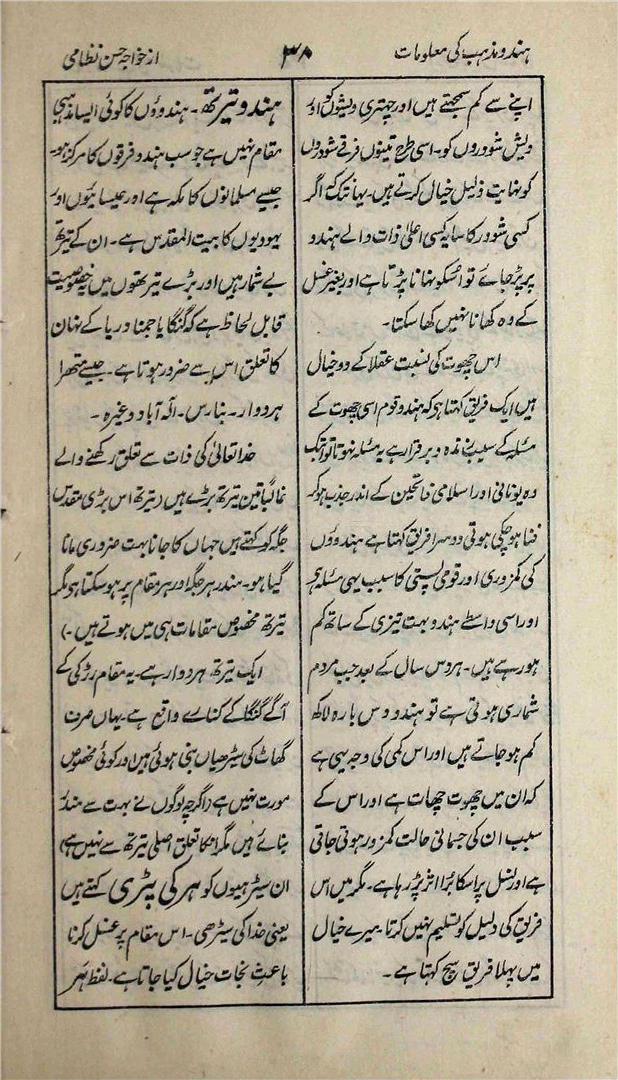 ہندو مذہب کی معلومات
۳۸
از خواجہ حسن نظامی
اپنے سے کم سمجھتے ہیں اور چھتری ویشوں کو اور
ویش شودروں کو۔ اسی طرح تینوں فرقے شودروں
کو نہایت ذلیل خیال کرتے ہیں۔ یہانتک کہ اگر
کسی شودر کا سایہ کسی اعلیٰ ذات والے ہندو
پر پڑ جائے تو اُسکو نہانا پڑتا ہے اور بغیر غسل
کے وہ کھانا نہیں کھا سکتا۔
اس چھوت کی نسبت عقلا کے دو خیال
ہیں ایک فریق کہتا ہو کہ ہندو قوم اسی چھوت کے
مسئلہ کے سبب زندہ و برقرار ہے یہ مسئلہ نہوتا تو ابتک
وہ یونانی اور اسلامی فاتحین کے اندر جذب ہو کر
فنا ہو چکی ہوتی دوسرا فریق کہتا ہے ہندوؤں
کی کمزوری اور قومی پستی کا سبب یہی مسئلہ ہی
اور اسی واسطے ہندو بہت تیزی کے ساتھ کم
ہو رہے ہیں۔ ہر دس سال کے بعد جب مردم
شماری ہوتی ہے تو ہندو دس بارہ لاکھ
کم ہو جاتے ہیں اور اس کمی کی وجہ یہی ہے
کہ ان میں چھوت چھات ہے اور اس کے
سبب ان کی جسمانی حالت کمزور ہوتی جاتی
ہے اور نسل پر اسکا بُرا اثر پڑ رہا ہے۔ مگر میں اس
فریق کی دلیل کو تسلیم نہیں کرتا۔ میرے خیال
میں پہلا فریق سچ کہتا ہے۔
ہندو تیرتھ۔ ہندوؤں کا کوئی ایسا مذہبی
مقام نہیں ہے جو سب ہندو فرقوں کا مرکز ہو۔
جیسے مسلمانوں کا مکہ ہے اور عیسائیوں اور
یہودیوں کا بیت المقدس ہے۔ ان کے تیرتھ
بے شمار ہیں اور بڑے تیرتھوں میں یہ خصوصیت
قابل لحاظ ہے کہ گنگا یا جمنا دریا کے نہان
کا تعلق اس سے ضرور ہوتا ہے۔ جیسے متھرا
ہردوار۔ بنارس۔ الہ آباد وغیرہ۔
خدا تعالیٰ کی ذات سے تعلق رکھنے والے
غالباً تین تیرتھ بڑے ہیں (تیرتھ اس بڑی مقدس
جگہ کو کہتے ہیں جہاں کا جانا بہت ضروری مانا
گیا ہو۔ مندر ہر جگہ اور ہر مقام پر ہو سکتا ہی مگر
تیرتھ مخصوص مقامات ہی میں ہوتے ہیں۔)
ایک تیرتھ ہردوار ہے۔ یہ مقام رڑکی کے
آگے گنگا کے کنارے واقع ہے۔ یہاں صرف
گھاٹ کی سیڑھیاں بنی ہوئی ہیں اور کوئی مخصوص
مورت نہیں ہے (اگرچہ لوگوں نے بہت سے مندر
بنائے ہیں مگر انکا تعلق اصلی تیرتھ سے نہیں ہے)
ان سیڑھیوں کو ہر کی پیڑی کہتے ہیں
یعنی خدا کی سیڑھی۔ اس مقام پر غسل کرنا
باعثِ نجات خیال کیا جاتا ہے۔ لفظ ہَر